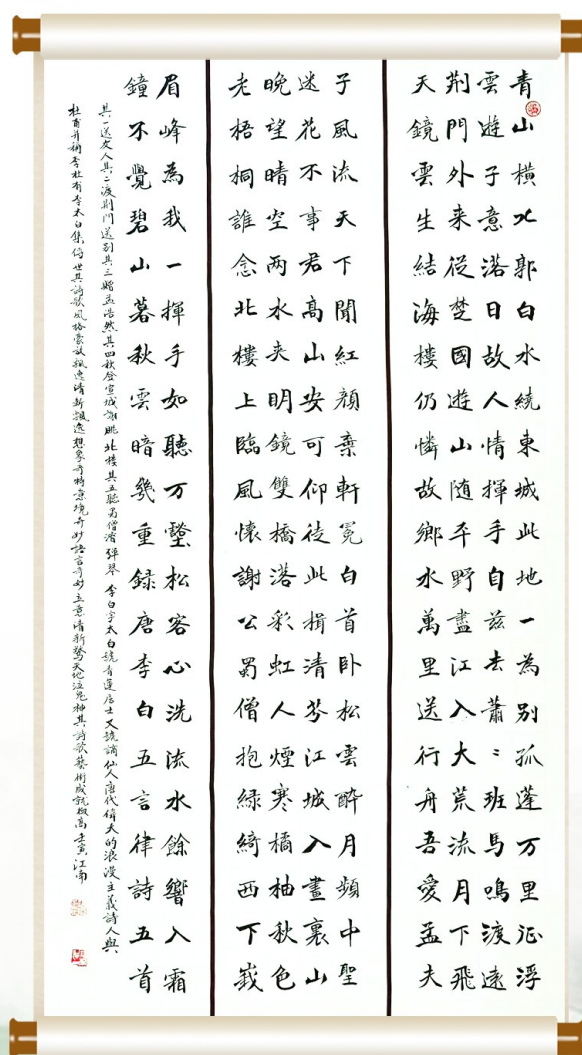 青山橫北郭白水繞東城此地一為別孤蓬万里征浮
雲遊子意落日故人情揮手自茲去蕭〻班馬鳴渡遠
荆門外来從楚國遊山随平野盡江入大荒流月下飛
天鏡雲生結海樓仍憐故鄉水萬里送行舟吾愛孟夫
子風流天下聞紅顏棄軒冕白首臥松雲醉月頻中聖
迷花不事君高山安可仰徒此揖清芬江城入畫裏山
晚望晴空两水夾明鏡雙橋落彩虹人煙寒橘柚秋色
老梧桐誰念北樓上臨風懷謝公蜀僧抱綠綺西下峩
眉峰為我一揮手如聽万壑松客心洗流水餘響入霜
鐘不覺碧山暮秋雲暗幾重録唐李白五言律詩五首
其一送友人其二渡荆門送别其三贈孟浩然其四秋登宣城謝朓北楼其五聽蜀僧濬弹琴 李白字太白號青蓮居士又號謫仙人唐代偉大的浪漫主義詩人與
杜甫并稱李杜有李太白集傳世其詩歌風格豪放飄逸清新飄逸想象奇特意境奇妙語言奇妙立意清新驚天地泣鬼神其詩歌藝術成就極高壬寅江南